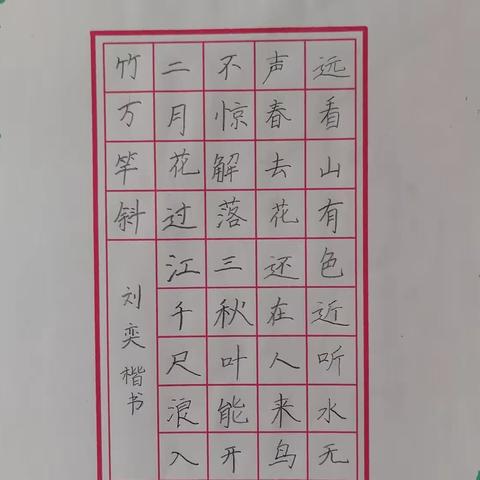 远看山有色近听水无
声春去花还在人来鸟
不惊解落三秋叶能开
二月花过江千尺浪入
竹万竿斜
刘奕楷书